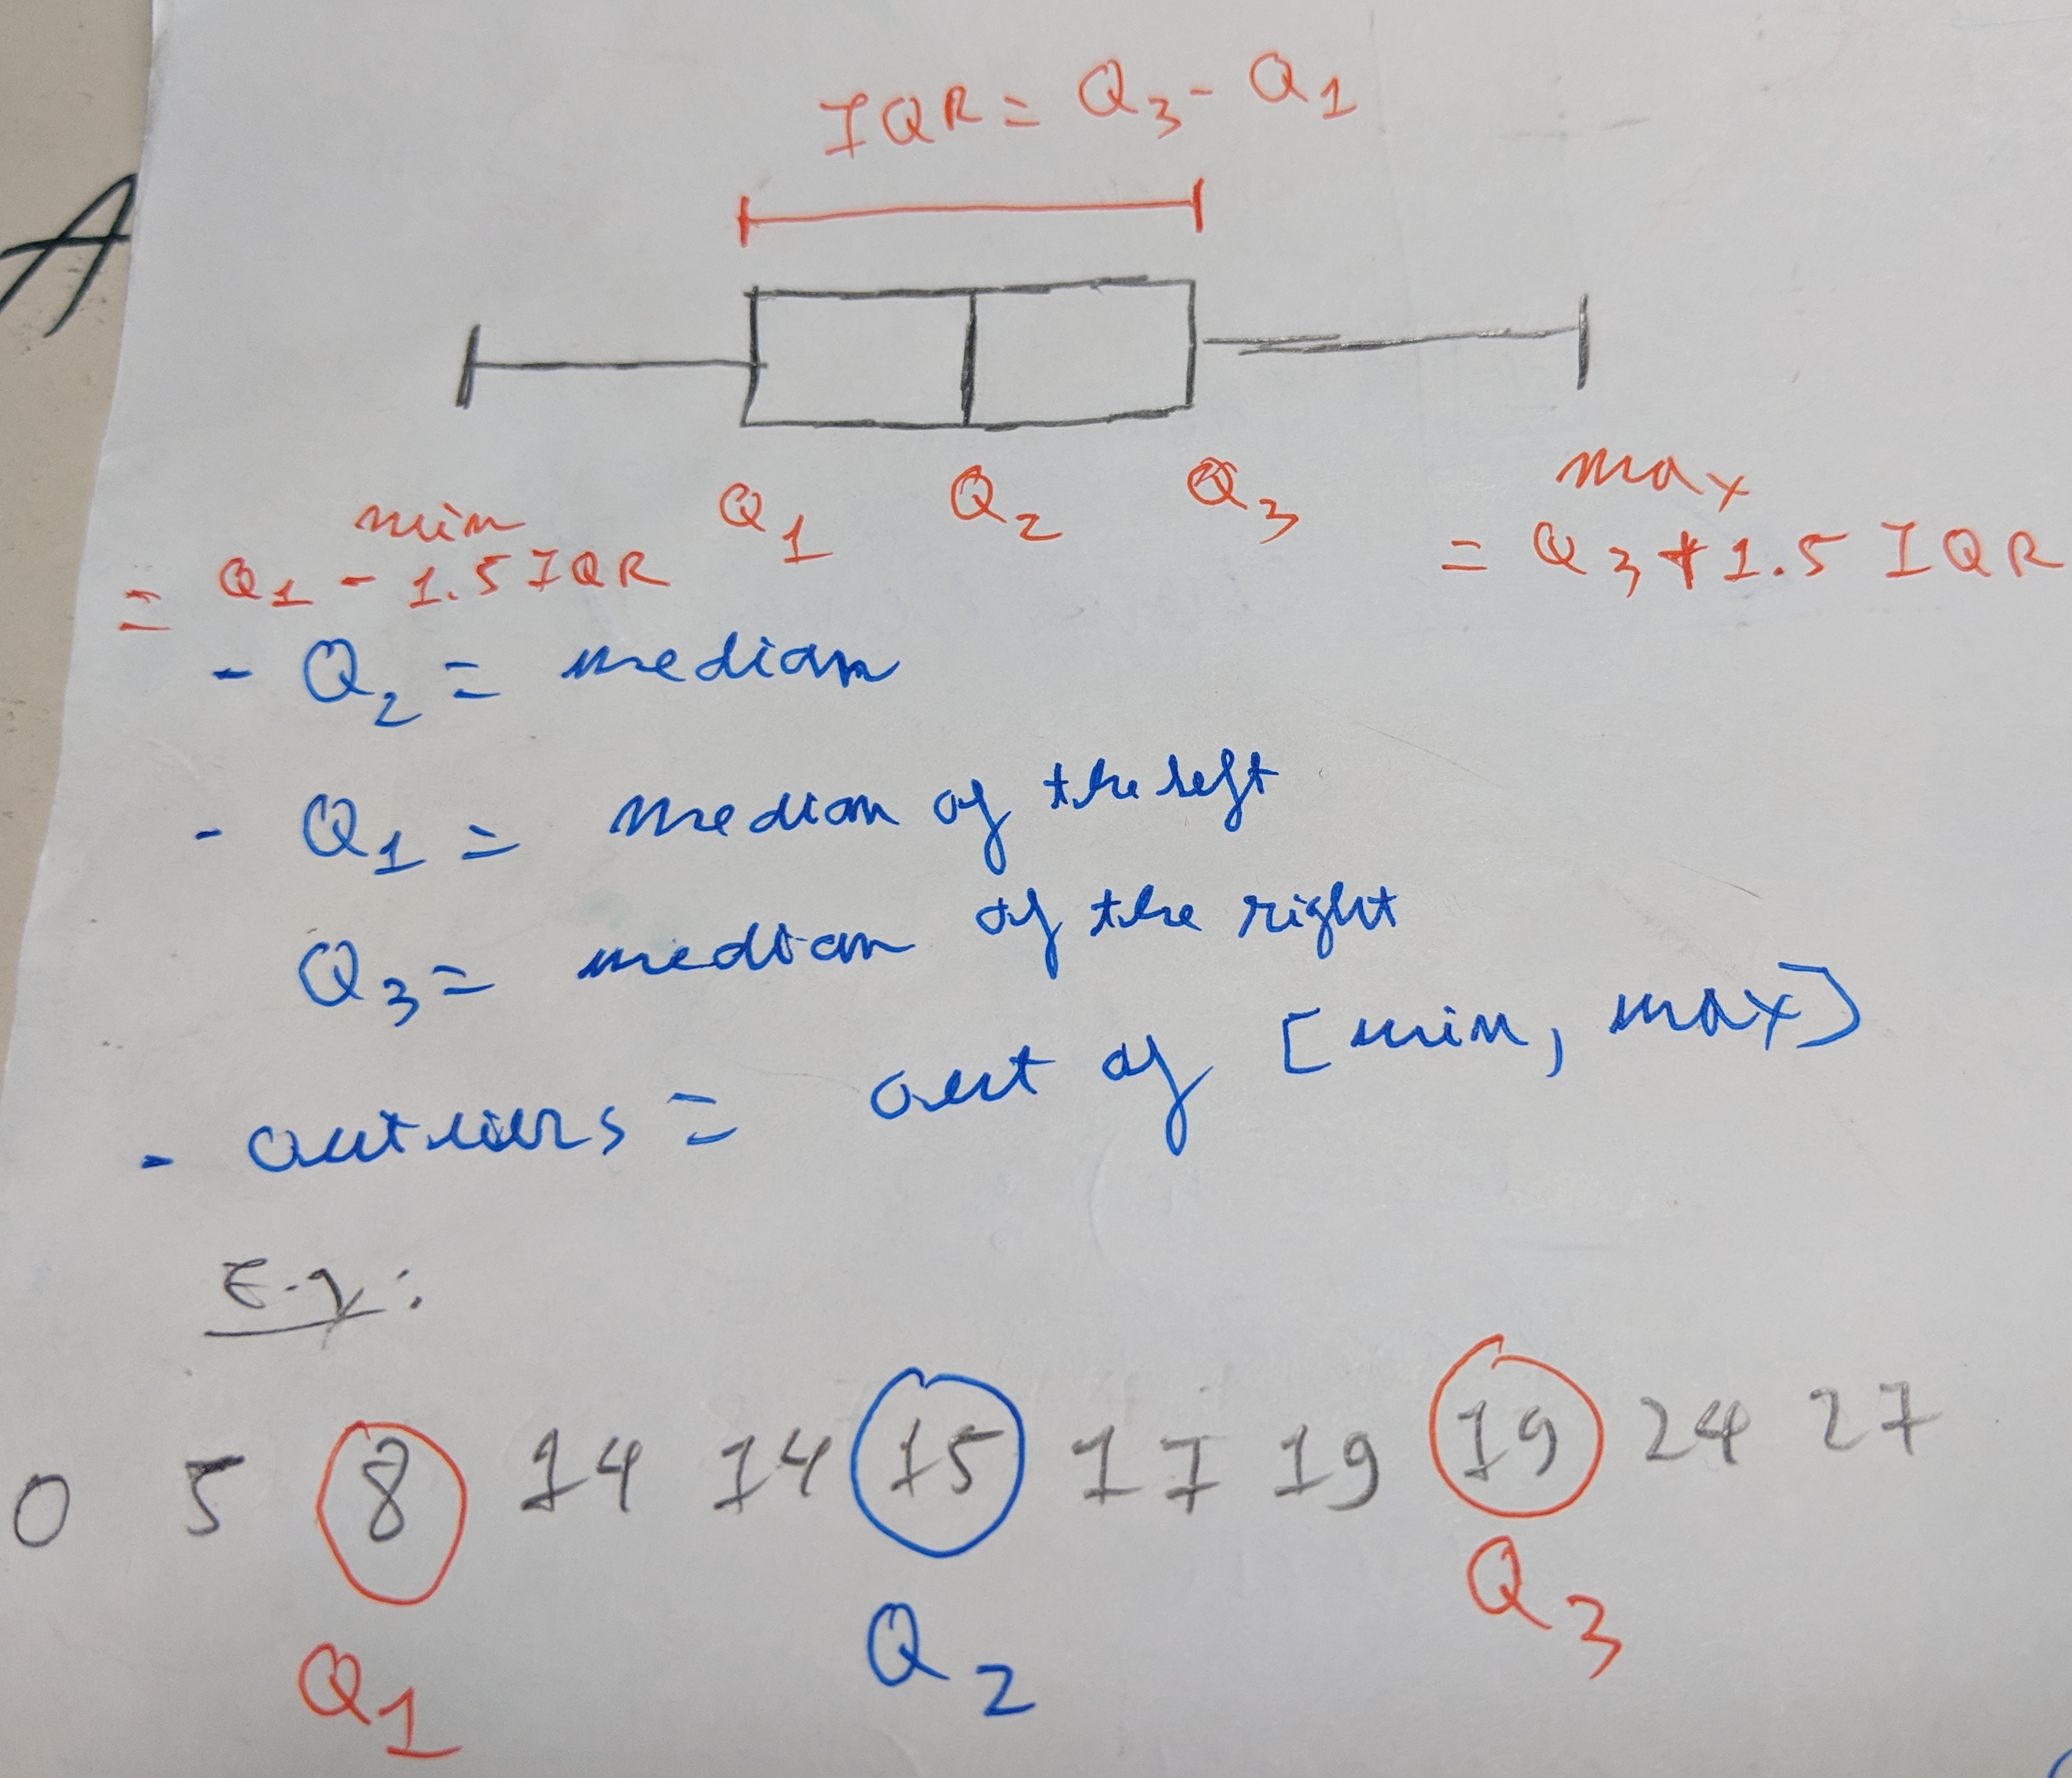 A
IQR = Q3 - Q1
min Q1 Q2 Q3 max
= Q1 - 1.5 IQR = Q3 + 1.5 IQR
- Q2 = median
- Q1 = median of the left
Q3 = median of the right
- outliers = out of [min, max]
E.g:
0 5 8 14 14 15 17 19 19 24 27
Q1 Q2 Q3